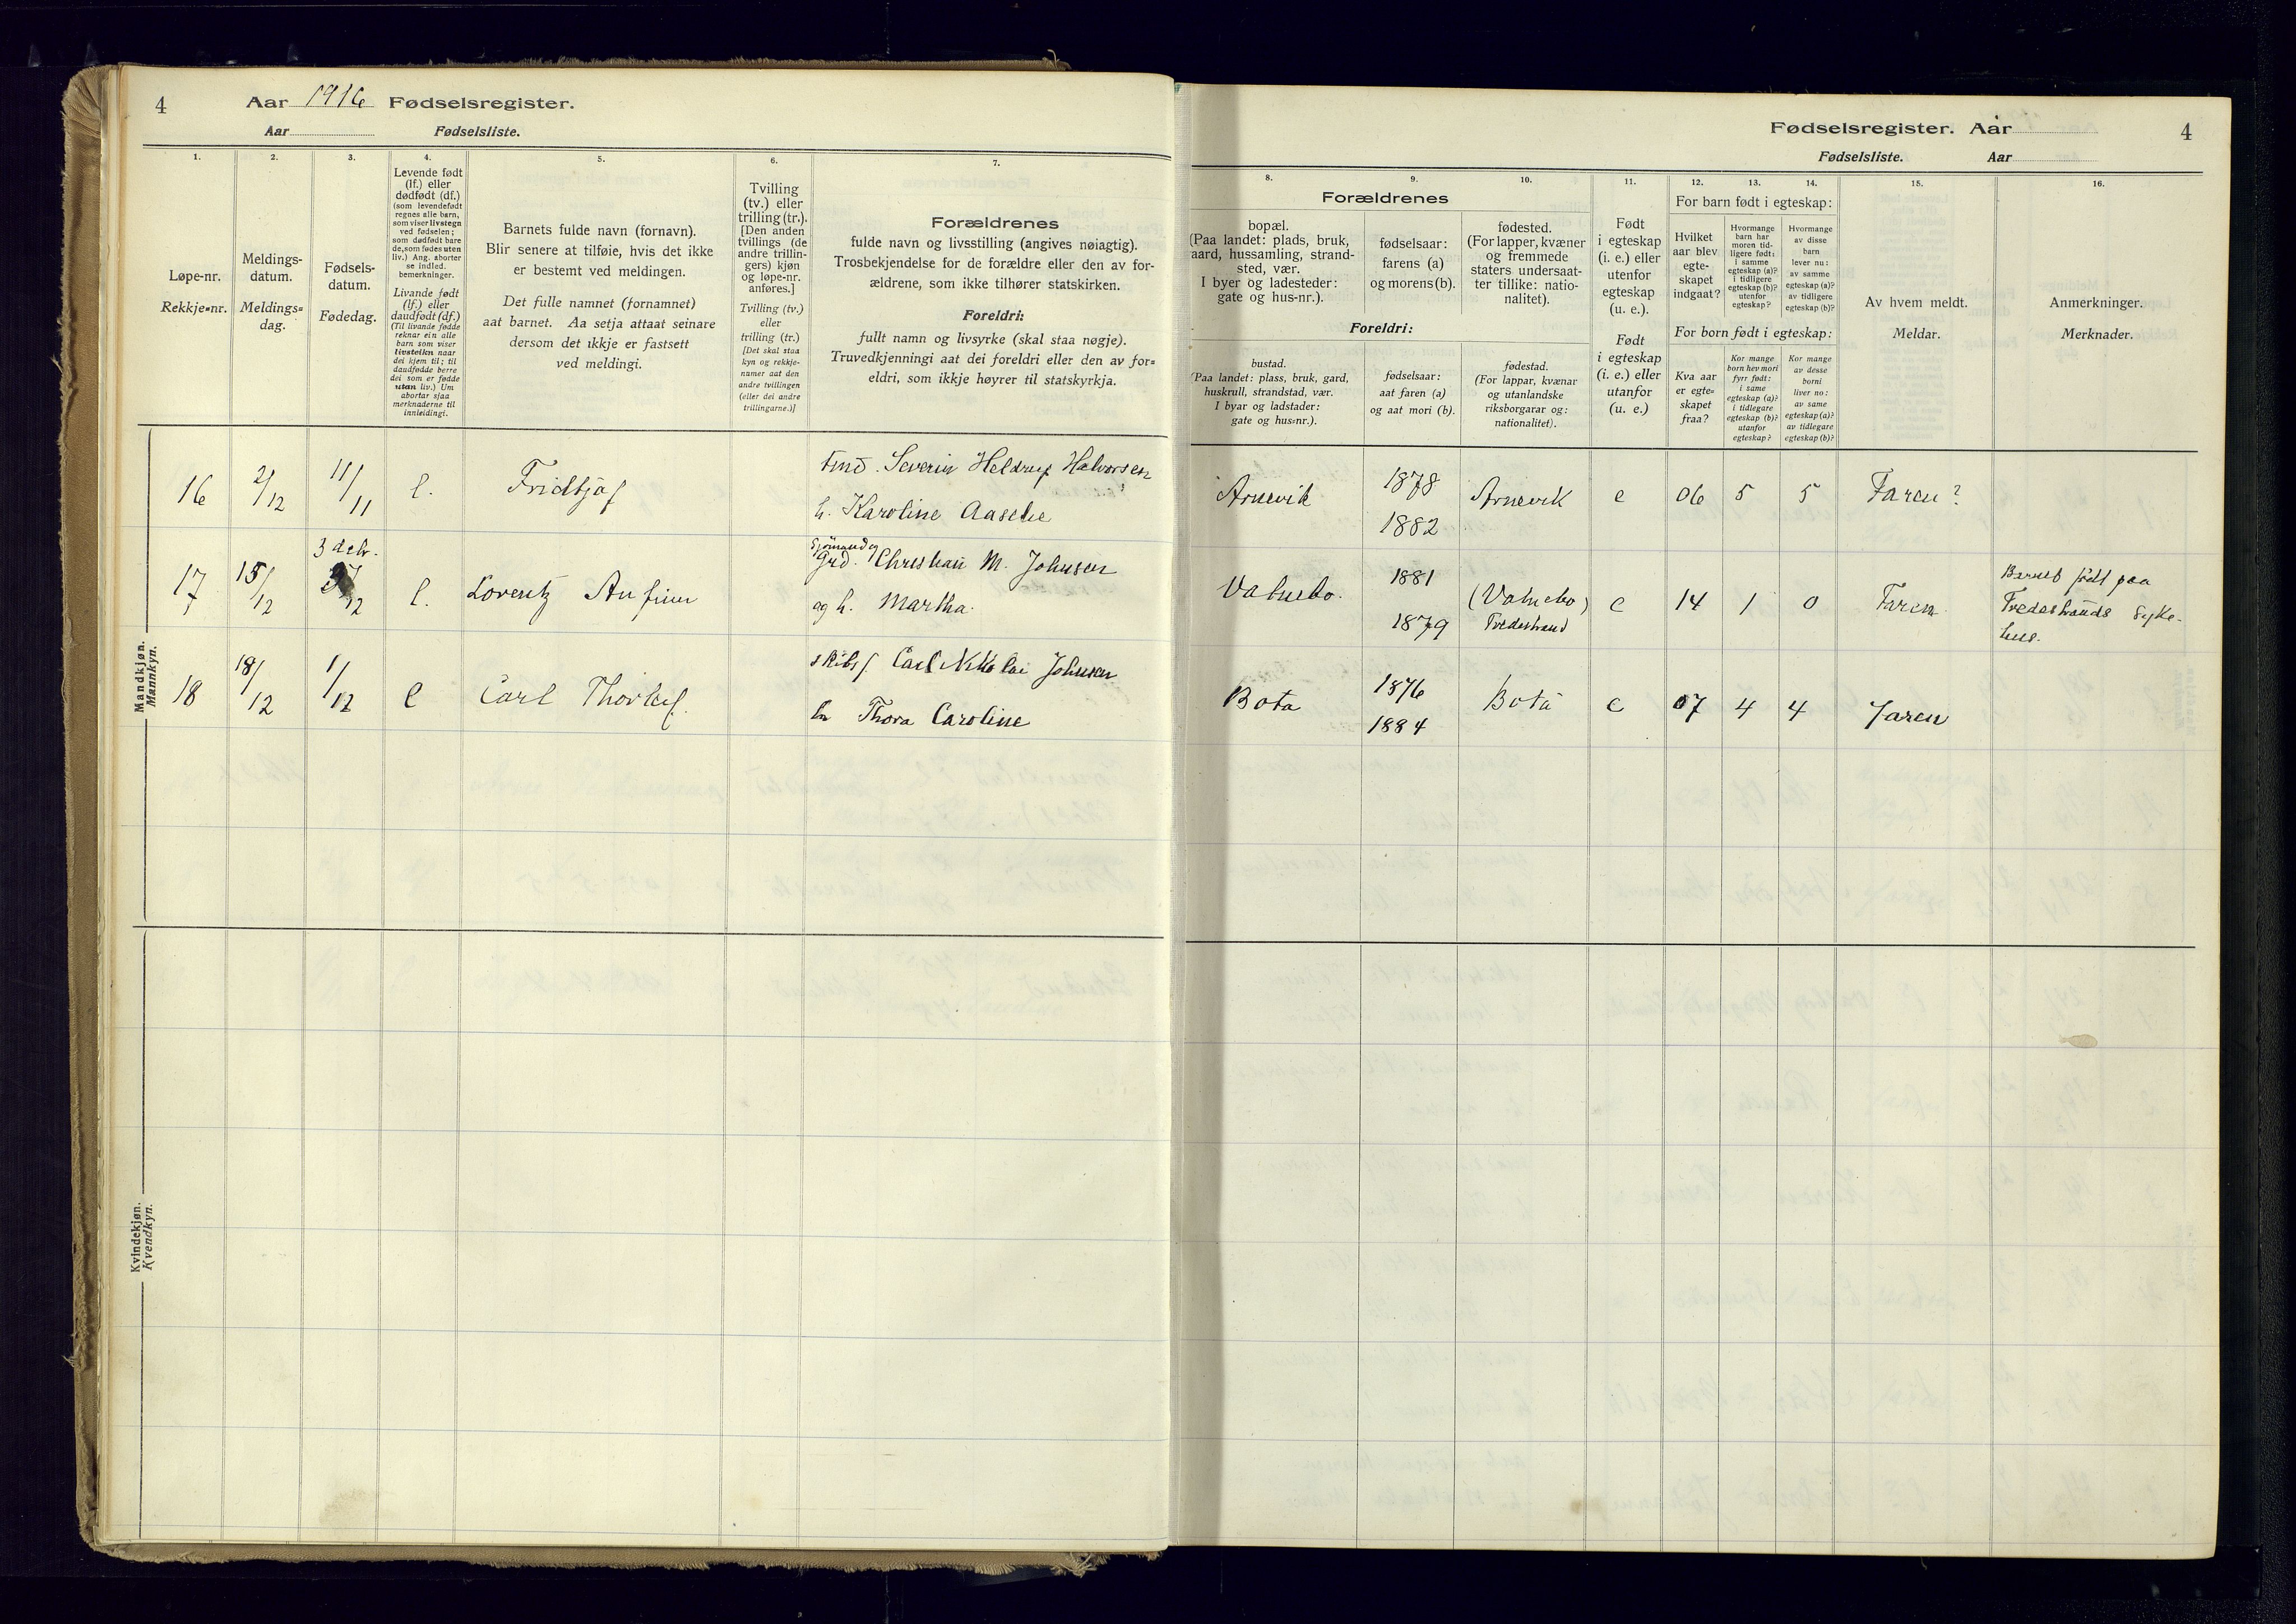 4
Aar 1916 Fødselsregister.
Aar Fødselsliste.
1.
Løpe-nr.
Rekkje-nr.
2.
Meldings-
datum.
Meldings-
dag.
3.
Fødsels-
datum.
Fødedag.
4.
Levende født
(lf.) eller
dødfødt (df.)
(som levendefødt
regnes alle barn,
som viser livstegn
ved fødselen;
som dødfødt bare
de, som fødes uten
liv.) Ang. aborter
se indled.
bemerkninger.
Livande født
(lf.) eller
daudfødt (df.)
(Til livande fødde
reknar ein alle
barn som viser
livsteikn naar
dei kjem til; til
daudfødde berre
dei som er fødde
utan liv.) Um
abortar sjaa
merknaderne til
innleidingi.
5.
Barnets fulde navn (fornavn).
Blir senere at tilføie, hvis det ikke
er bestemt ved meldingen.
Det fulle namnet (fornamnet)
aat barnet. Aa setja attaat seinare
dersom det ikkje er fastsett
ved meldingi.
6.
Tvilling
(tv.) eller
trilling (tr.).
[Den anden
tvillings (de
andre trillin-
gers) kjøn
og løpe-nr.
anføres.]
Tvilling (tv.)
eller
trilling (tr.)
[Det skal staa
kyn og rekkje-
numer aat den
andre tvillingen
(eller dei andre
trillingarne.)]
7.
Forældrenes
fulde navn og livsstilling (angives nøiagtig).
Trosbekjendelse for de forældre eller den av for-
ældrene, som ikke tilhører statskirken.
Foreldri:
fullt namn og livsyrke (skal staa nøgje).
Truvedkjenningi aat dei foreldri eller den av for-
eldri, som ikkje høyrer til statskyrkja.
Mandkjøn.
Mannkyn.
16 2/12 11/11 l. Fridtjof
Severin Heldrup Halvorsen
h. Karoline Aaselie
17 15/12 3 deb. /12 l. Lorentz Anfinn
Sjömand og
Grd. Christian M. Johnsen
og h. Martha.
18 18/12 1/12 l Carl Thorleif.
skibsf Carl Nikolai Johnsen
hu Thora Caroline
Kvindekjøn.
Kvendkyn.
Fødselsregister. Aar 4
Fødselsliste. Aar
8.
Forældrenes
bopæl.
(Paa landet: plads, bruk,
aard, hussamling, strand-
sted, vær.
I byer og ladesteder:
gate og hus-nr.).
9.
fødselsaar:
farens (a)
og morens (b).
10.
fødested.
(For lapper, kvæner
og fremmede
staters undersaat-
ter tillike: natio-
nalitet).
Foreldri:
bustad.
(Paa landet: plass, bruk, gard,
huskrull, strandstad, vær.
I byar og ladstader:
gate og hus-nr.).
fødselsaar:
aat faren (a)
og aat mori (b).
fødestad.
(For lappar, kvænar
og utanlandske
riksborgarar og:
nationalitet).
11.
Født
i egteskap
(i. e.) eller
utenfor
egteskap
(u. e.).
Født
i egteskap
(i. e.) eller
utanfor
(u. e.)
12. 13. 14.
For barn født i egteskap:
Hvilket
aar blev
egte-
skapet
indgaat?
Hvormange
barn har
moren tid-
ligere født:
i samme
egteskap (a)?
i tidligere
egteskap (b)?
utenfor
egteskap?
Hvormange
av disse
barn
lever nu:
av samme
egteskap (a)?
av tidligere
egteskap (b)?
For born født i egteskap:
Kva aar
er egte-
skapet
fraa?
Kor mange
born hev mori
fyrr født:
i same
egteskap (a)?
i tidlegare
egteskap (b)?
utanfor
egteskap?
Kor mange
av desse
borni
liver no:
av same
egteskap (a)?
av tidlegare
egteskap (b)?
15.
Av hvem meldt.
Meldar.
16.
Anmerkninger.
Merknader.
Arnevik 1878 1882 Arnevik e 06 5 5 Faren?
Vatnebo. 1881 1879 (Vatnebo) Tvedestrand e 14 1 0 Faren
Barnet født paa
Tvedestrands Syke-
hus.
Bota 1876 1884 Bota e 07 4 4 Faren